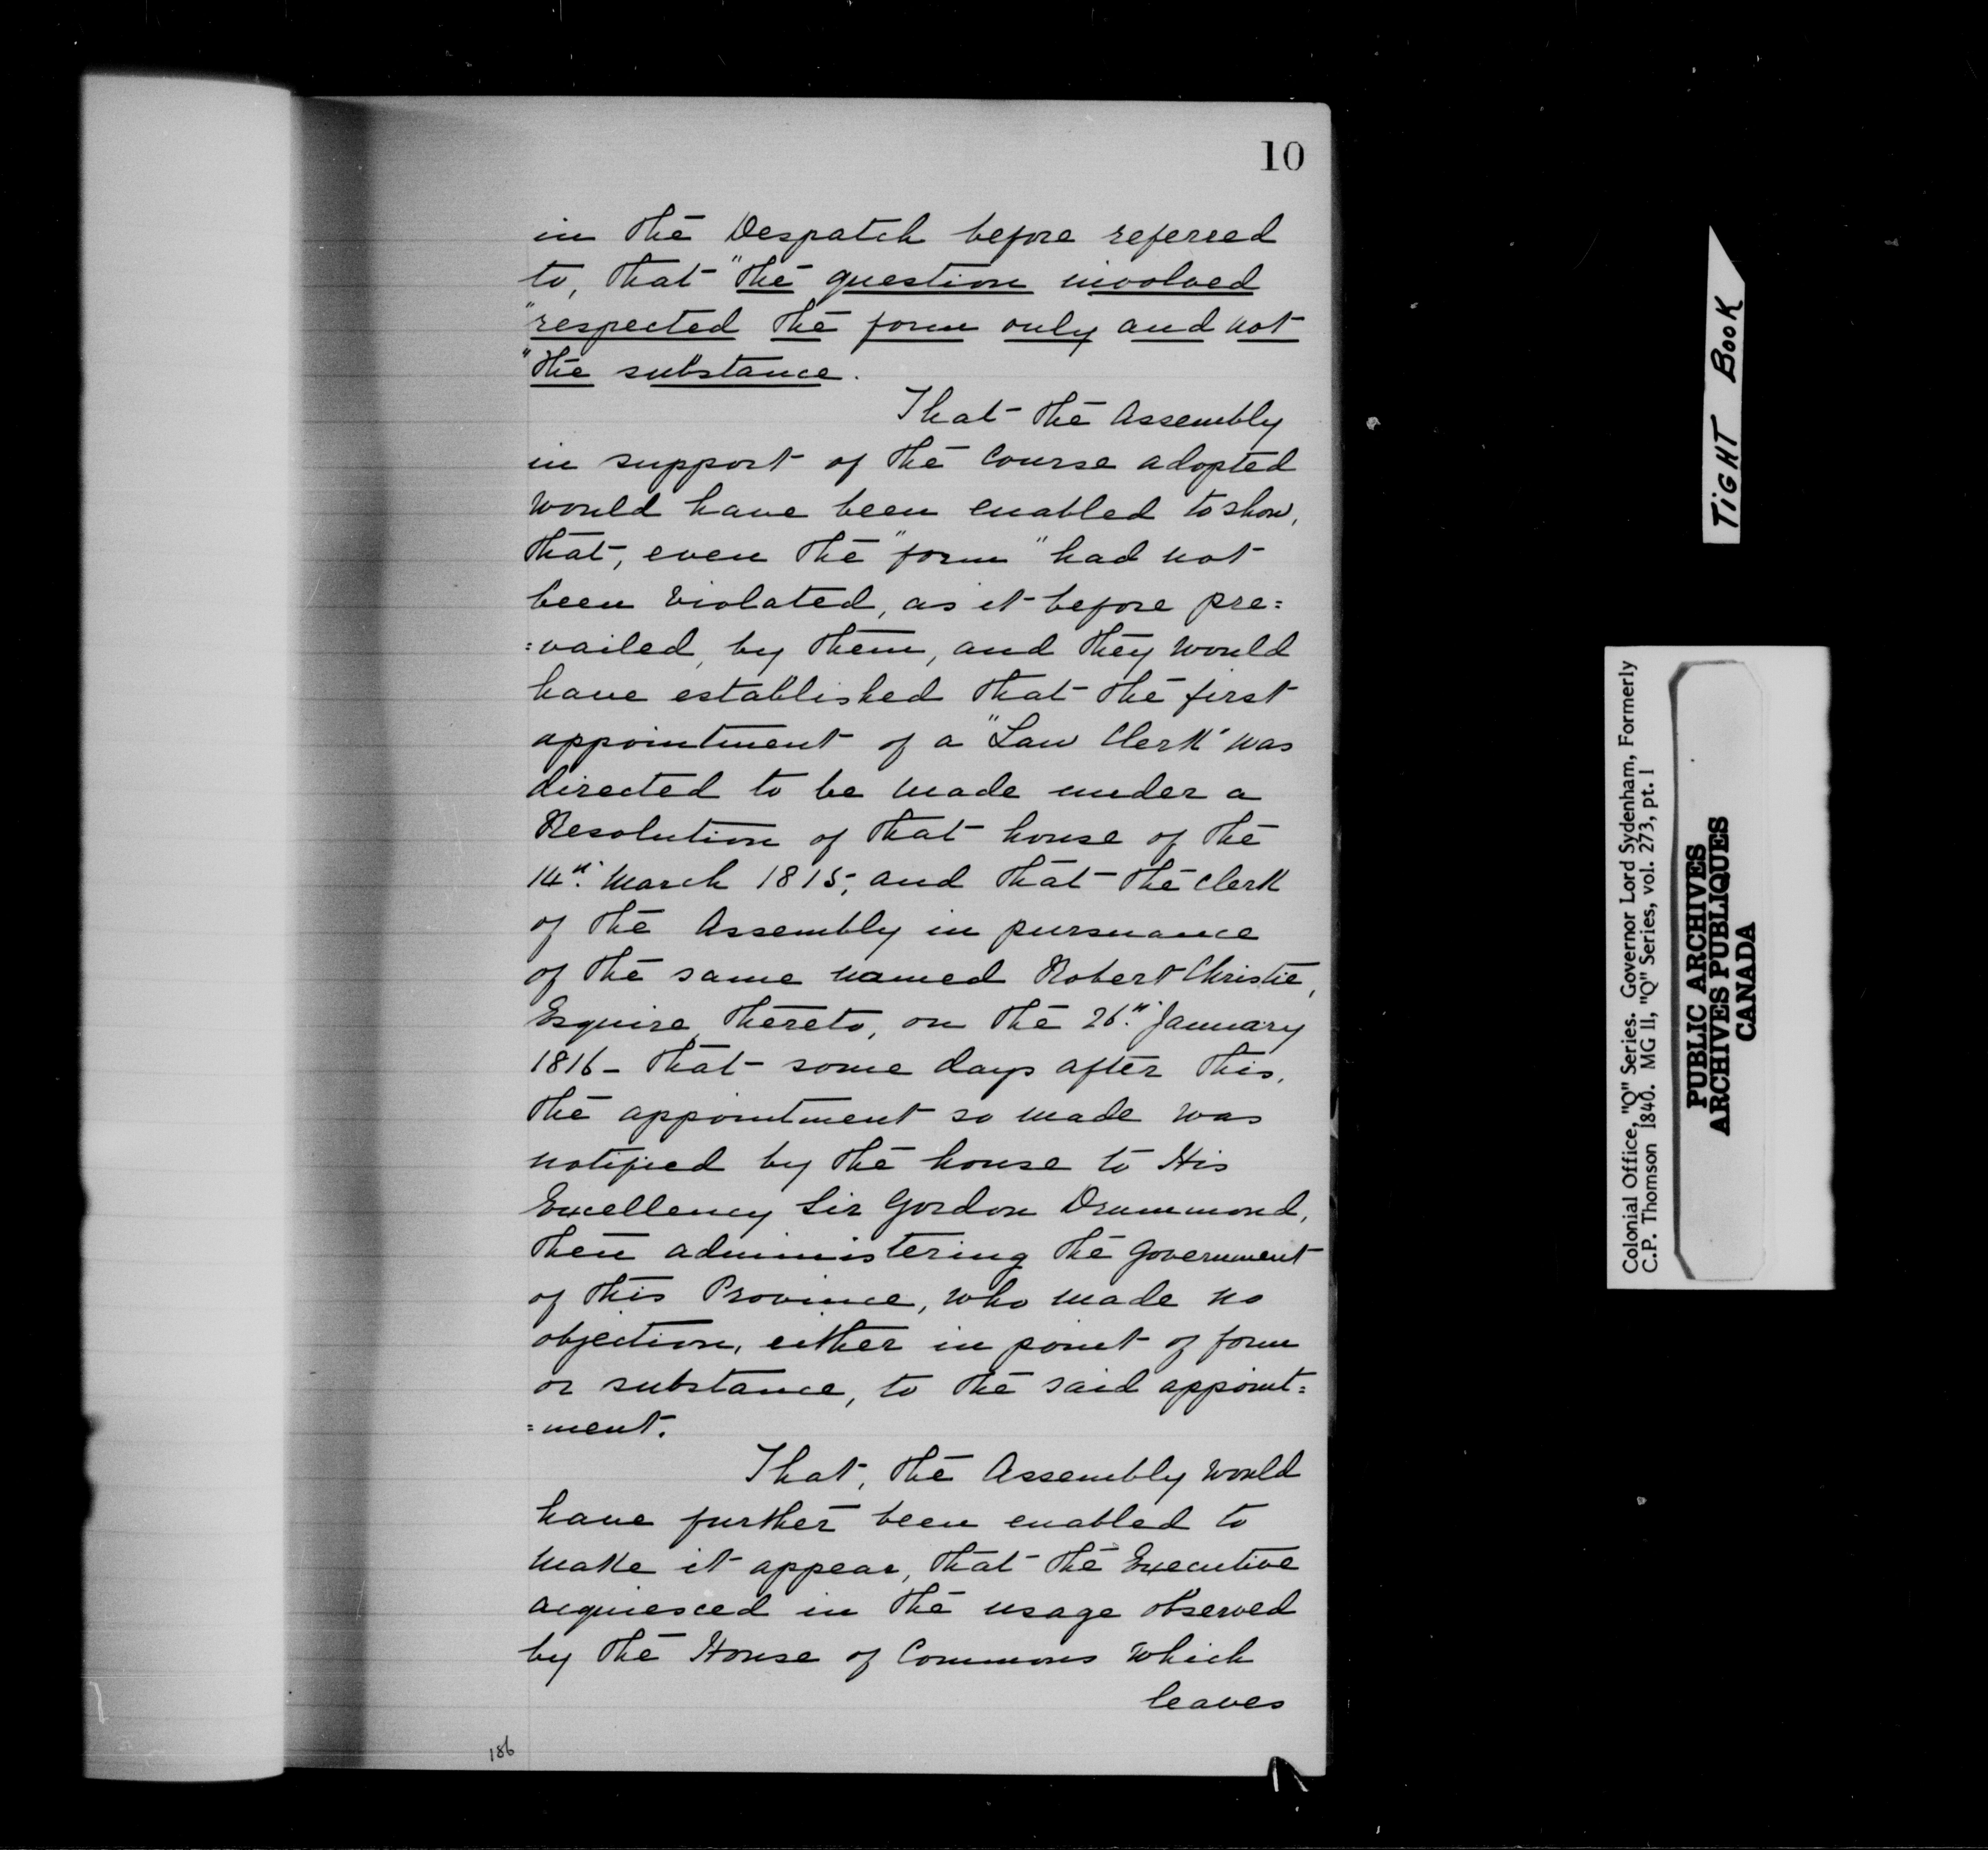 10
in the Despatch before referred
to, that "the question involved
"respected the form only and not
"the substance.
That the Assembly
in support of the Course adopted
would have been enabled to show,
that, even the "form" had not
been violated, as it before pre=
=vailed, by them, and they would
have established that the first
appointment of a "Law Clerk" was
directed to be made under a
Resolution of that house of the
14th. March 1815, and that the Clerk
of the Assembly in pursuance
of the same named Robert Christie,
Esquire, thereto, on the 26th. January
1816 - that some days after this,
the appointment so made was
notified by the house to His
Excellency Sir Gordon Drummond,
then administering the Government
of this Province, who made no
objection, either in point of form
or substance, to the said appoint=
=ment.
That, the Assembly would
have further been enabled to
make it appear, that the Executive
acquiesced in the usage observed
by the House of Commons which
leaves
186
TIGHT BOOK
Colonial Office, "Q" Series. Governor Lord Sydenham, Formerly
C.P. Thomson 1840. MG 11, "Q" Series, vol. 273, pt. 1
PUBLIC ARCHIVES
ARCHIVES PUBLIQUES
CANADA